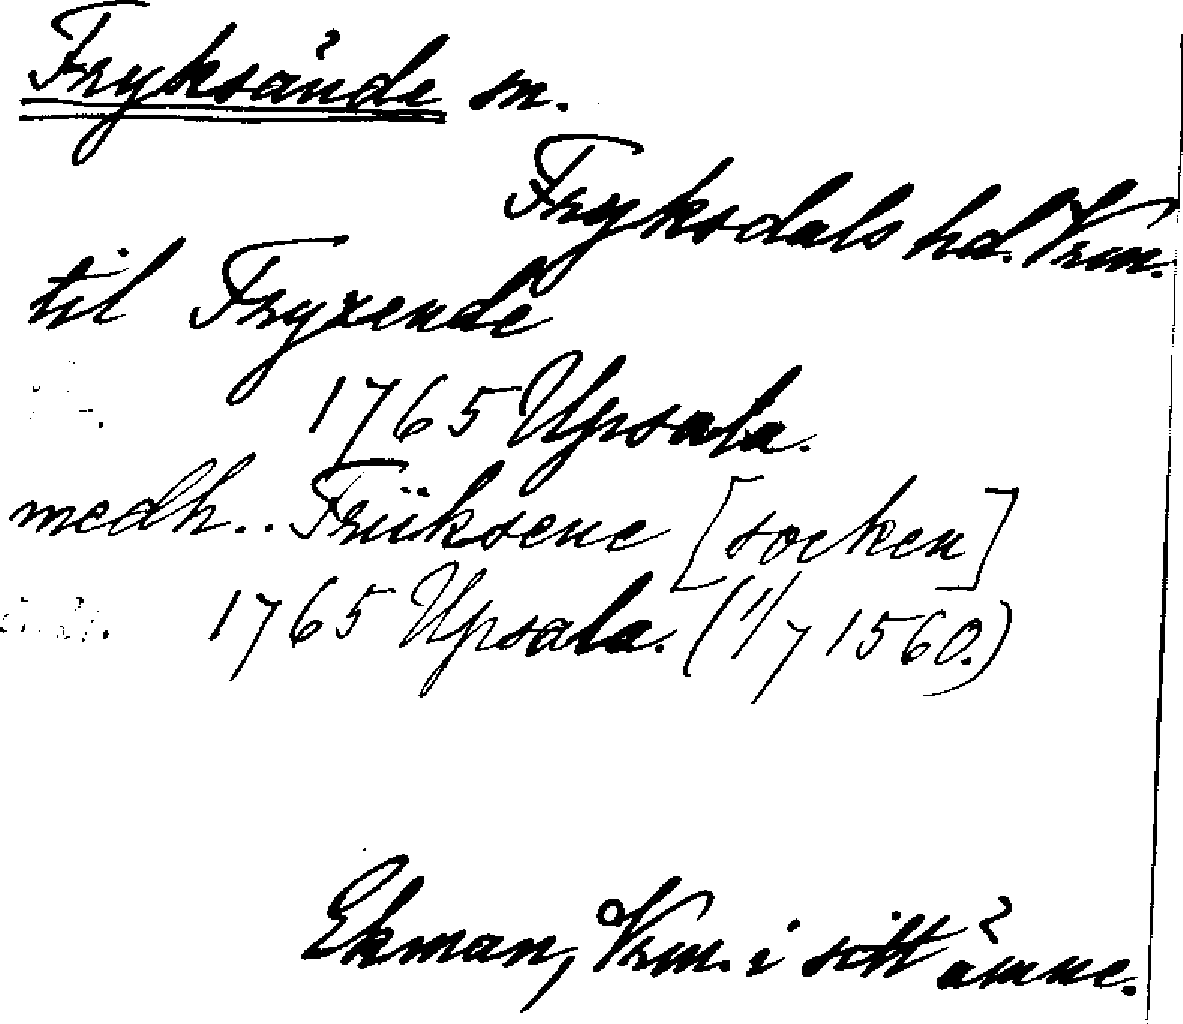 Fryksände sn.
Fryksdals hd. Vrm.
til Fryxende
1765 Upsala.
medh.. Friiksene [socken]
1765 Upsala. (1/7 1560.)
Ekman, Vrm. i sitt ämne.